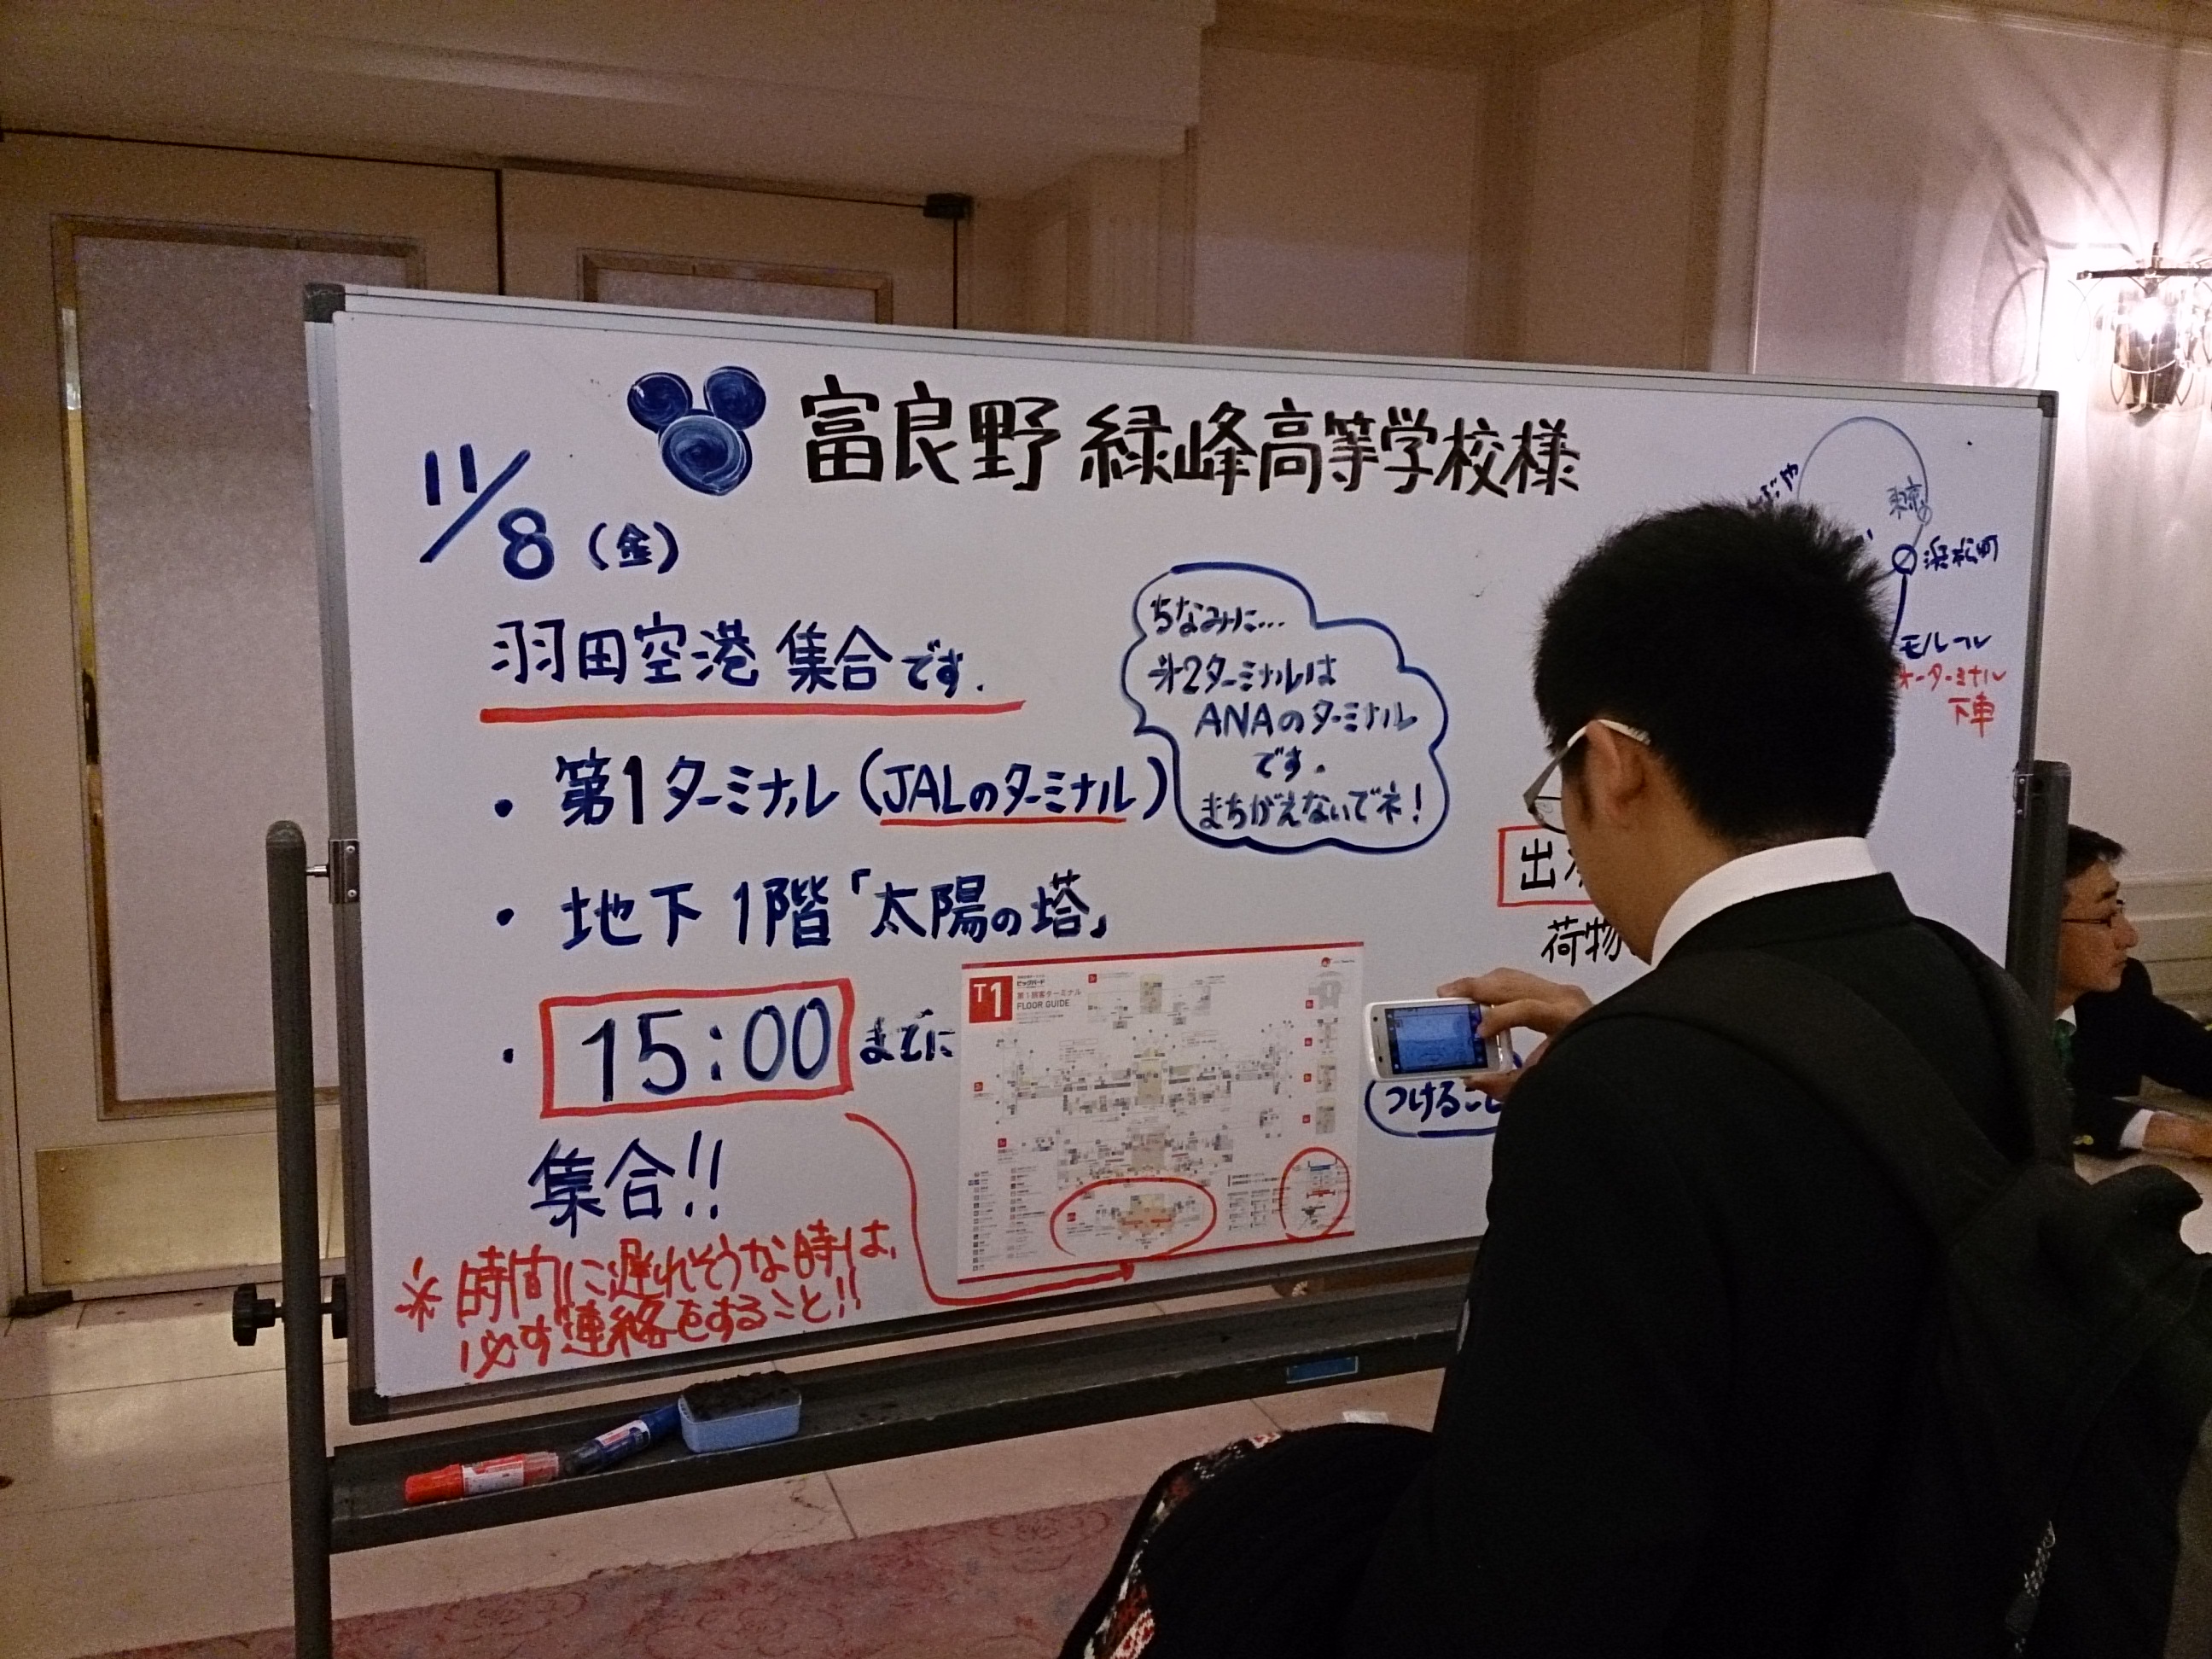 富良野 緑峰高等学校様
11/8 (金)
羽田空港 集合です.
・第1ターミナル (JALのターミナル)
・地下1階「太陽の塔」
・15:00 までに
集合!!
※時間に遅れそうな時は、
必ず連絡をすること!!
ちなみに…
第2ターミナルは
ANAのターミナル
です.
まちがえないでネ!
T1
第1旅客ターミナル
FLOOR GUIDE
東京
浜松町
モルール
ターミナル
下車
出
荷物
つけること